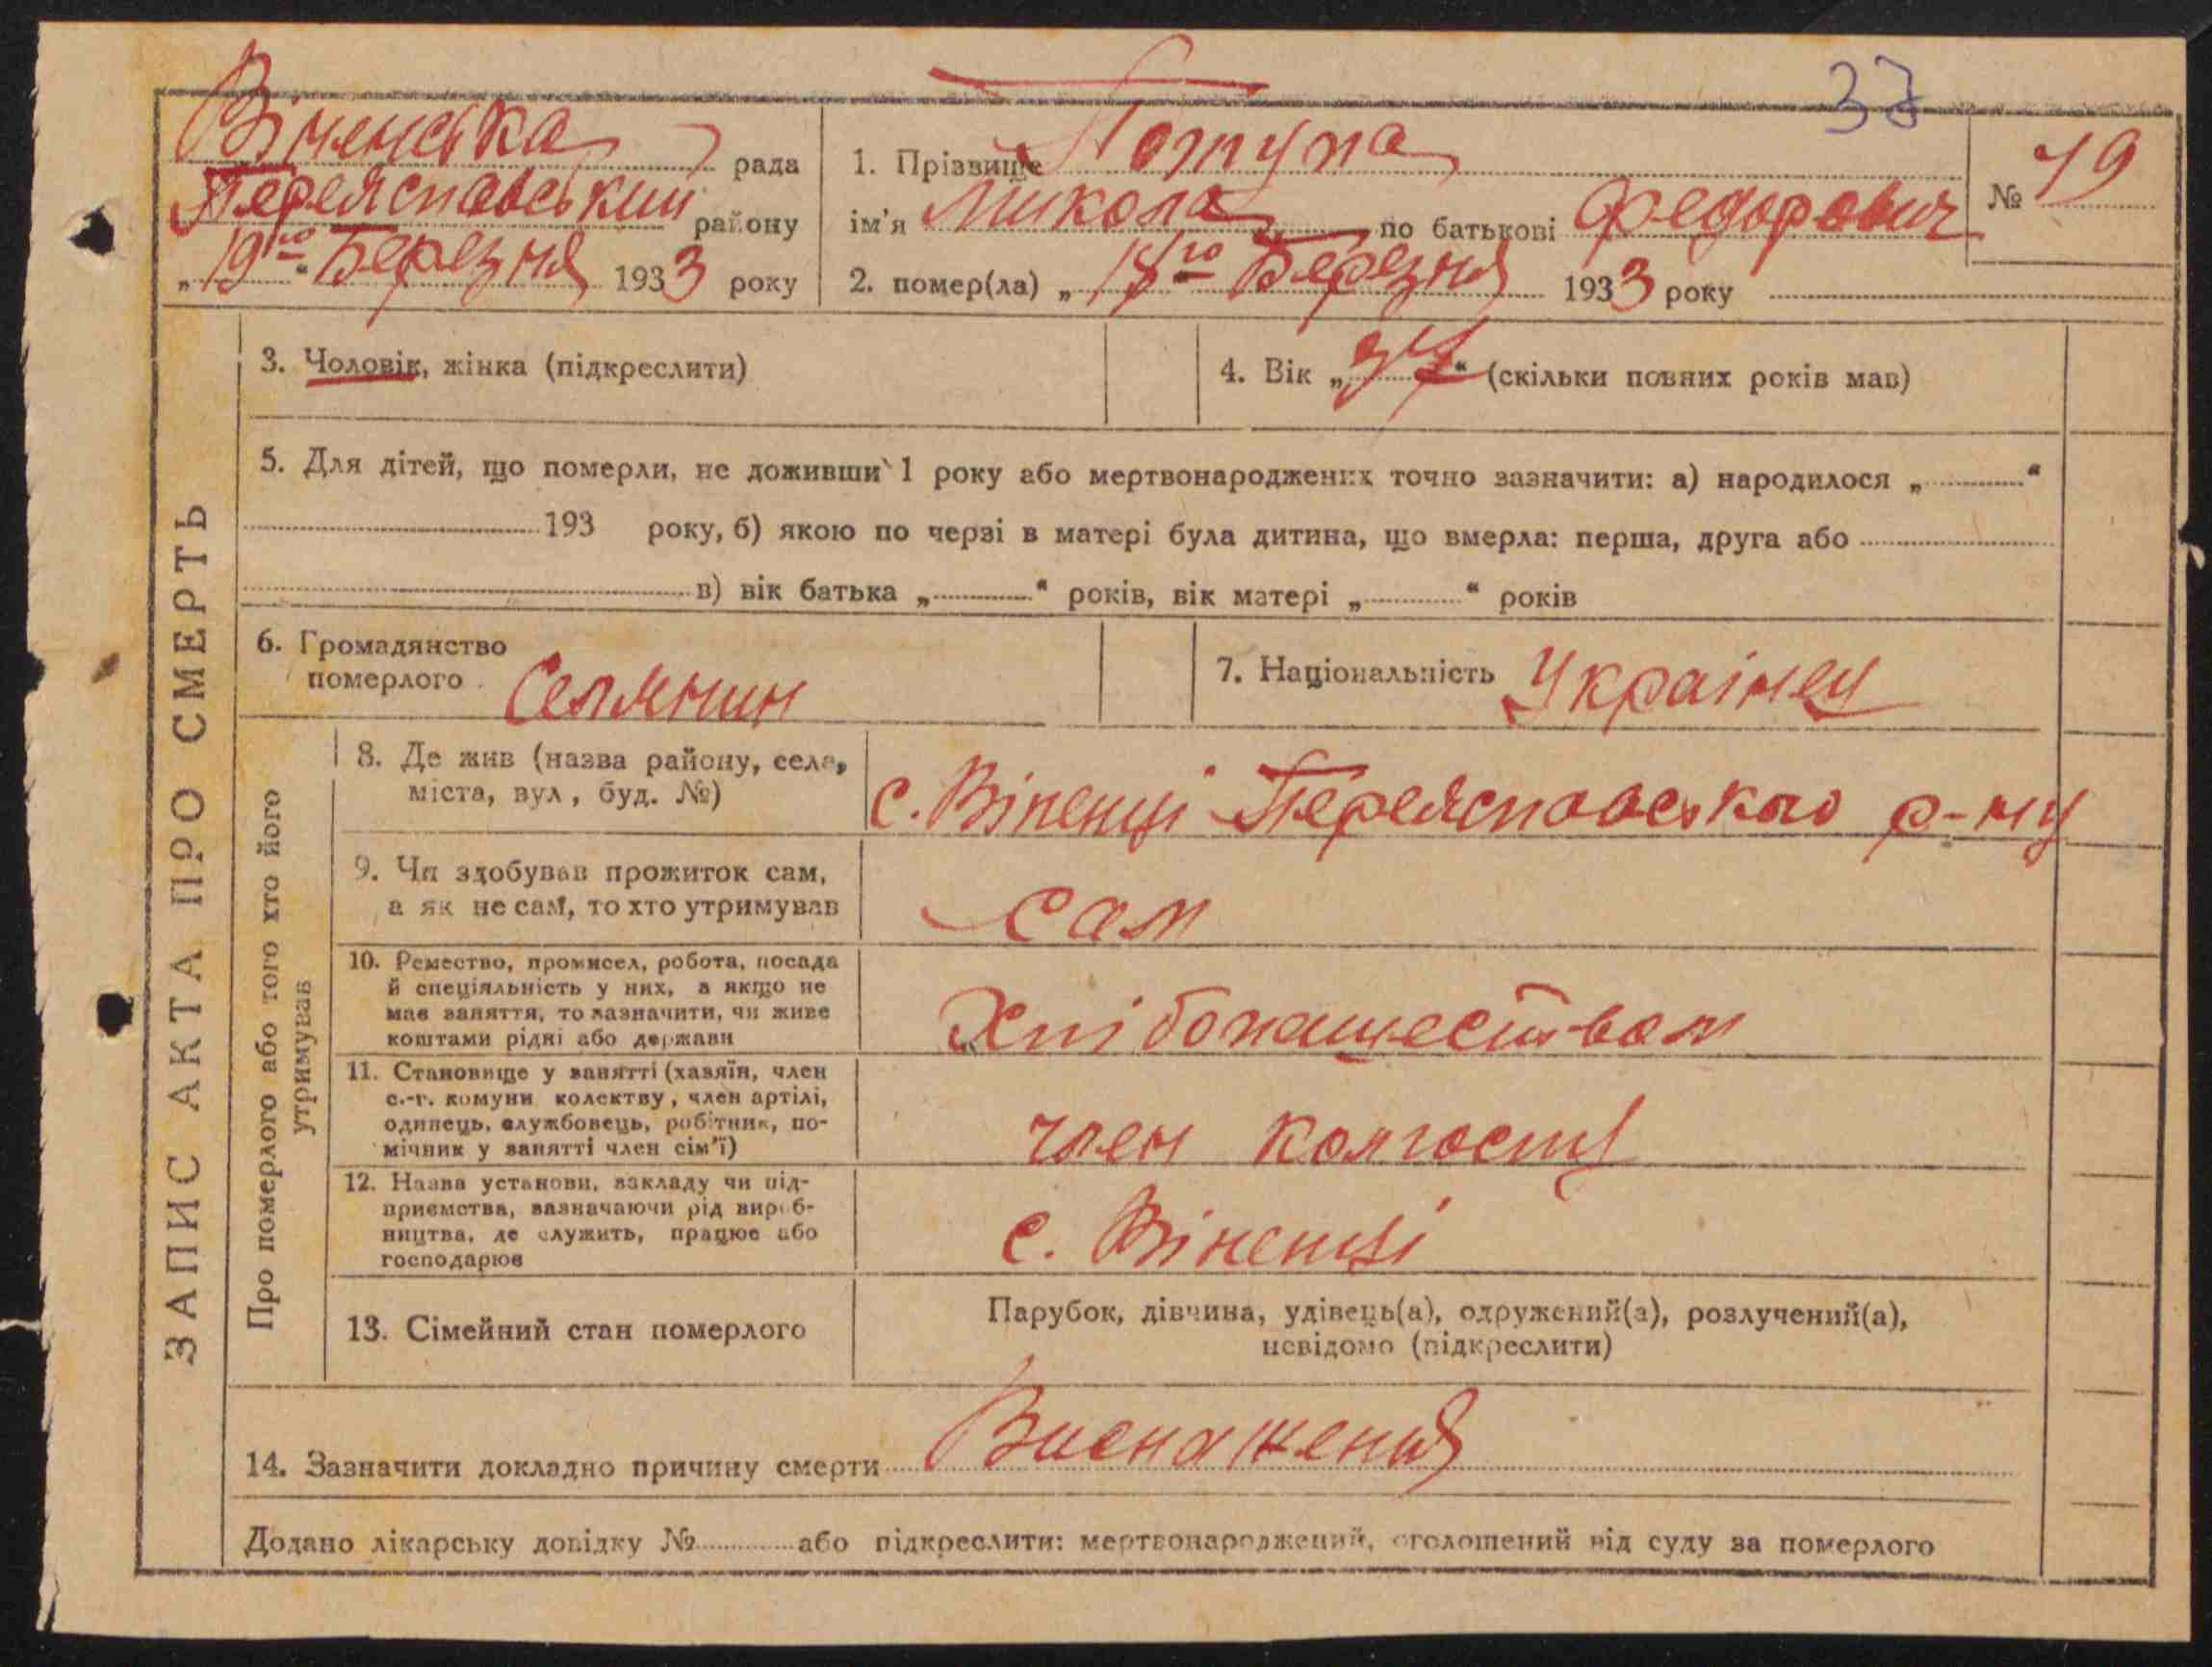 37
Віненська рада
Переяславський району
„19го“ Березня 1933 року
1. Прізвище Потупа
ім'я Микола по батькові Федорович
2. помер(ла) „18го“ Березня 1933 року
№ 19
ЗАПИС АКТА ПРО СМЕРТЬ
3. Чоловік, жінка (підкреслити)
4. Вік „“ (скільки повних років мав)
5. Для дітей, що померли, не доживши 1 року або мертвонароджених точно зазначити: а) народилося „“
193 року, б) якою по черзі в матері була дитина, що вмерла: перша, друга або
в) вік батька „“ років, вік матері „“ років
6. Громадянство
померлого Селянин
7. Національність Українец
Про померлого або того хто його
утримував
8. Де жив (назва району, села,
міста, вул, буд. №)
с. Віненці Переяславського р-ну
9. Чи здобував прожиток сам,
а як не сам, то хто утримував
сам
10. Ремество, промисел, робота, посада
й спеціяльність у них, а якщо не
мав заняття, то зазначити, чи живе
коштами рідні або держави
Хлібопашеством
11. Становище у занятті (хазяїн, член
с.-г. комуни колективу, член артілі,
одинець, службовець, робітник, по-
мічник у занятті член сім'ї)
член колгоспу
12. Назва установи, закладу чи під-
приємства, зазначаючи рід вироб-
ництва, де служить, працює або
господарює
с. Віненці
13. Сімейний стан померлого
Парубок, дівчина, удівець(а), одружений(а), розлучений(а),
невідомо (підкреслити)
14. Зазначити докладно причину смерти Виснаження
Додано лікарську довідку № або підкреслити: мертвонароджений, оголошений від суду за померлого